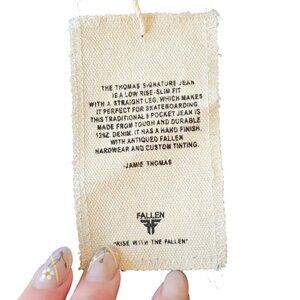 THE THOMAS SIGNATURE JEAN
IS A LOW RISE-SLIM FIT
WITH A STRAIGHT LEG, WHICH MAKES
IT PERFECT FOR SKATEBOARDING.
THIS TRADITIONAL 5 POCKET JEAN IS
MADE FROM TOUGH AND DURABLE
12OZ. DENIM. IT HAS A HAND FINISH,
WITH ANTIQUED FALLEN
HARDWEAR AND CUSTOM TINTING.
JAMIE THOMAS
FALLEN
"RISE WITH THE FALLEN"